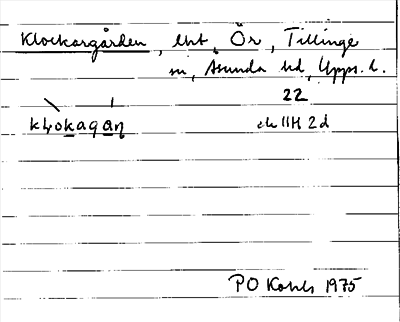 Klockargården, lht, Ör, Tillinge
sn, Åsunda hd, Upps. l.
22
kḷokagaṇ ek 11H 2d
PO Kohls 1975